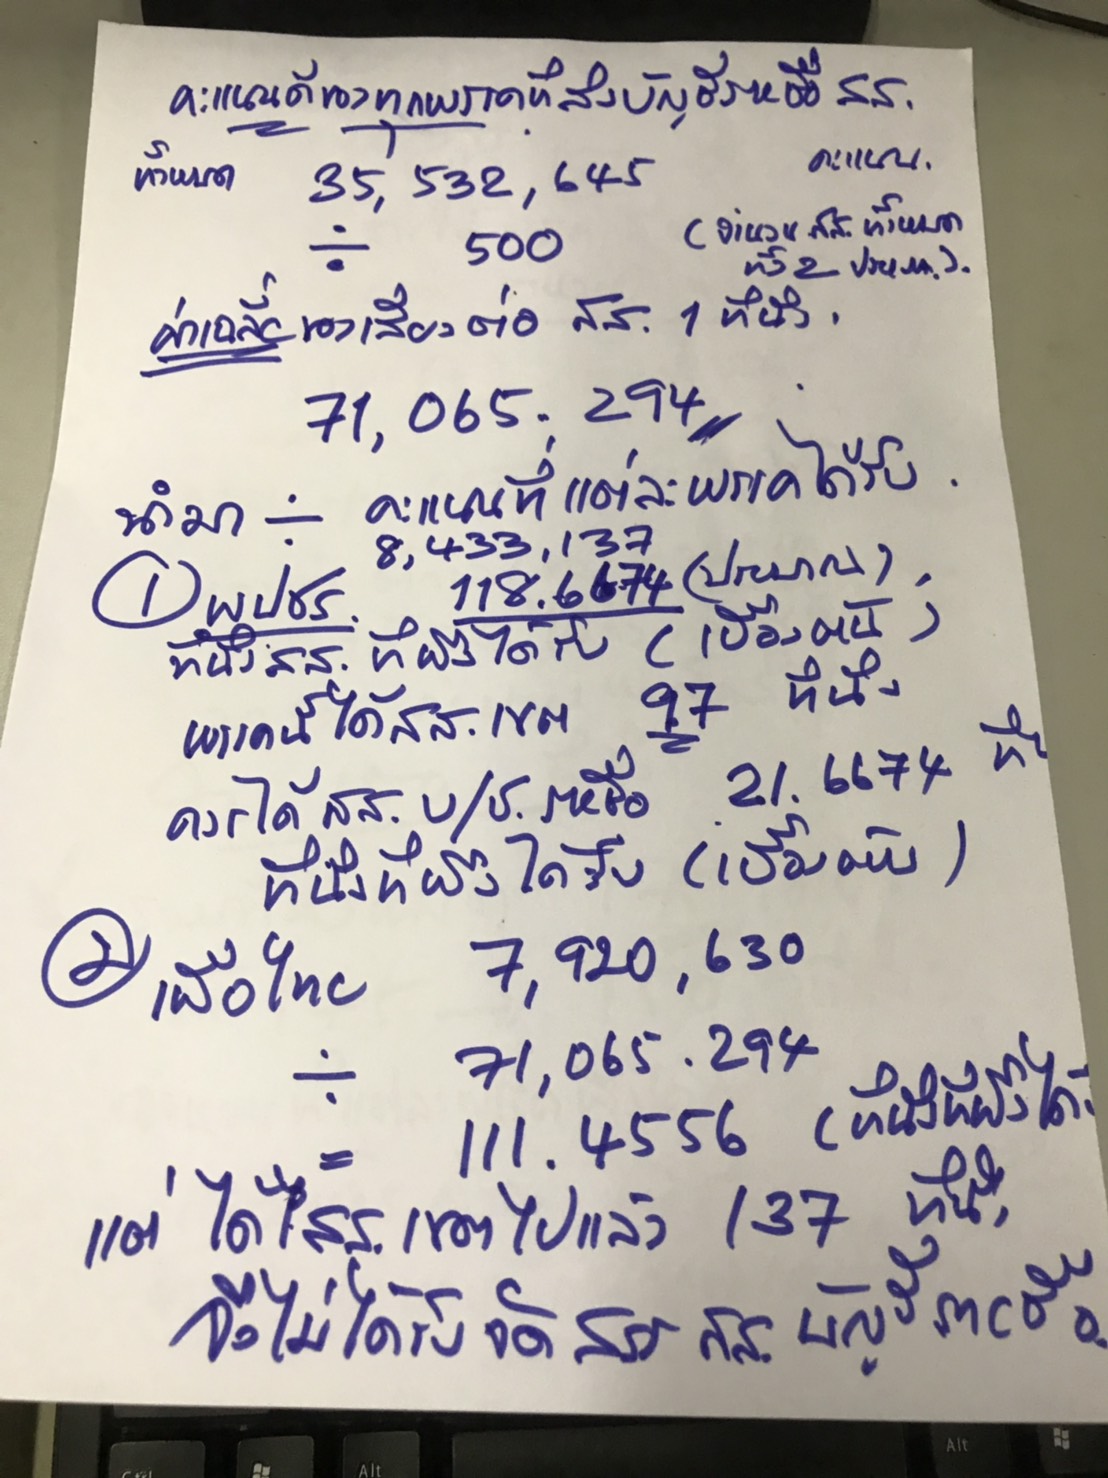 คะแนนดีของทุกพรรคที่ส่งบัญชีรายชื่อ สส.
ทั้งหมด 35,532,645 คะแนน.
÷ 500 (จำนวน สส. ทั้งหมด
ทั้ง 2 ประเภท).
ค่าเฉลี่ยของเสียงต่อ สส. 1 ที่นั่ง.
71,065.294
นำมา ÷ คะแนนที่แต่ละพรรคได้รับ.
8,433,137
① พปชร. 118.6674 (ประมาณ)
ที่นั่ง สส. ที่พึงได้รับ (เบื้องต้น)
พรรคนี้ได้ สส. เขต 97 ที่นั่ง
ควรได้ สส. บ/ช. รายชื่อ 21.6674 ที่
ที่นั่งที่พึงได้รับ (เบื้องต้น)
② เพื่อไทย 7,920,630
÷ 71,065.294
= 111.4556 (ที่นั่งที่พึงได้
แต่ ได้ สส. เขตไปแล้ว 137 ที่นั่ง
จึงไม่ได้รับ จัดสรร สส. บัญชีรายชื่อ